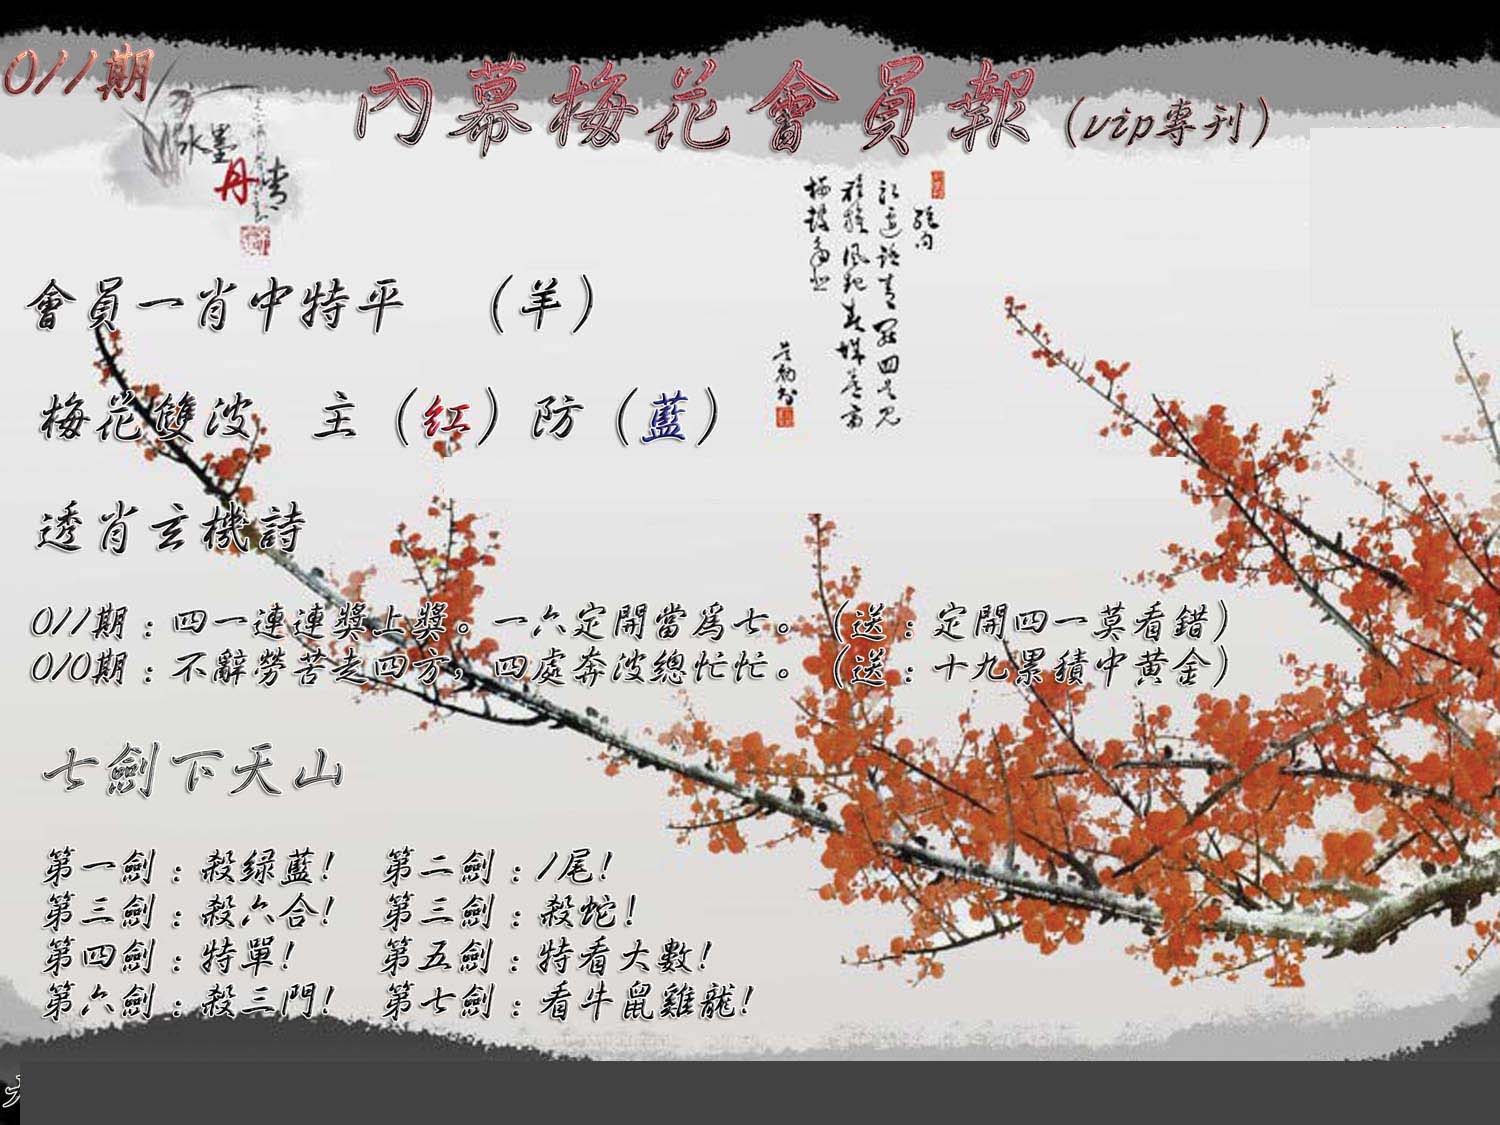 011期
內幕梅花會員報（vip專刊）
水墨
丹青
會員一肖中特平 （羊）
梅花雙波 主（紅）防（藍）
透肖玄機詩
011期：四一連連獎上獎。一六定開當爲七。（送：定開四一莫看錯）
010期：不辭勞苦走四方，四處奔波總忙忙。（送：十九累積中黄金）
七劍下天山
第一劍：殺绿藍！ 第二劍：1尾！
第三劍：殺六合！ 第三劍：殺蛇！
第四劍：特單！ 第五劍：特看大數！
第六劍：殺三門！ 第七劍：看牛鼠雞龍！